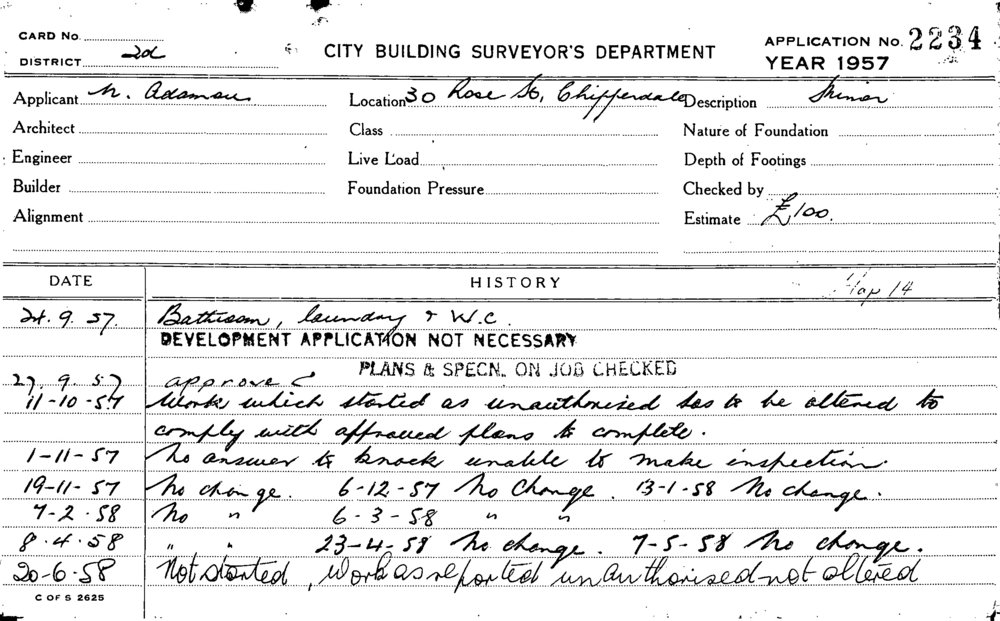 CARD No.
DISTRICT 2d
CITY BUILDING SURVEYOR'S DEPARTMENT
APPLICATION No. 2234
YEAR 1957
Applicant N. Adamou Location 30 Rose St, Chipperdale Description Minor
Architect Class Nature of Foundation
Engineer Live Load Depth of Footings
Builder Foundation Pressure Checked by
Alignment Estimate £100.
DATE HISTORY
Map 14
24.9.57. Bathroom, laundry & W.C.
DEVELOPMENT APPLICATION NOT NECESSARY
PLANS & SPECN. ON JOB CHECKED
27.9.57 approved
11-10-57 Work which started as unauthorised has to be altered to
comply with approved plans to complete.
1-11-57 No answer to knock unable to make inspection.
19-11-57 No change. 6-12-57 No Change. 13-1-58 No change.
7-2-58 No " 6-3-58 " "
8.4.58 " " 23-4-58 No change. 7-5-58 No change.
20-6-58 Not started, work as reported unauthorised not altered
C OF S 2625